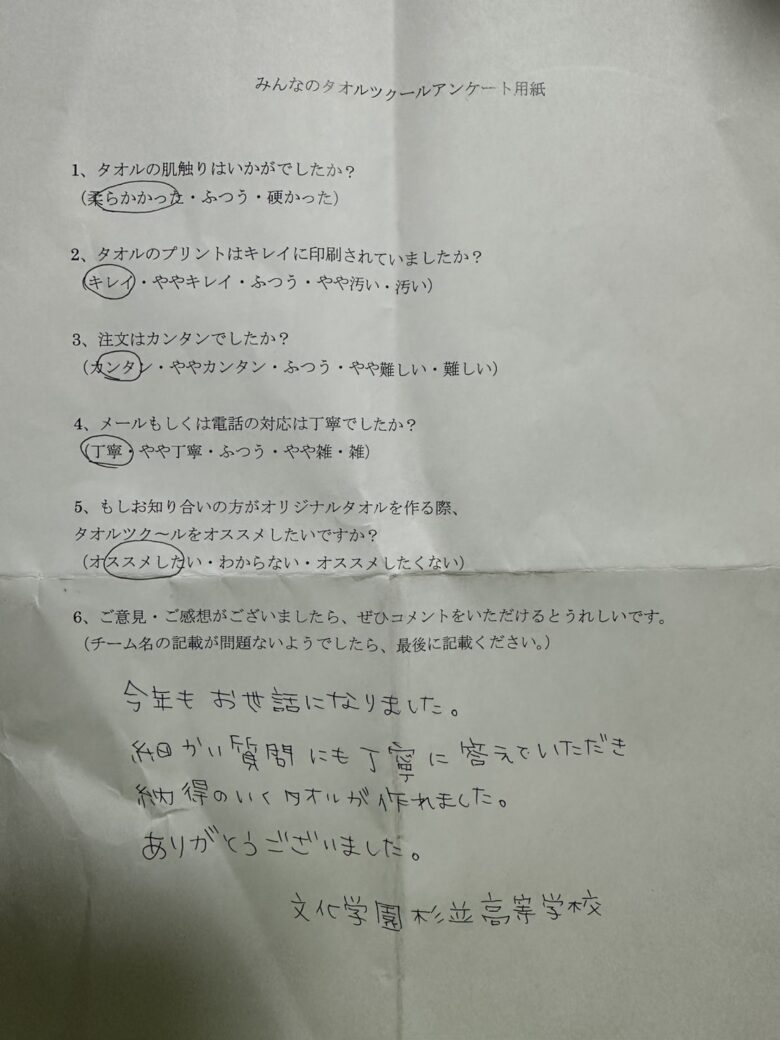 みんなのタオルツクールアンケート用紙
1、タオルの肌触りはいかがでしたか？
（柔らかかった・ふつう・硬かった）
2、タオルのプリントはキレイに印刷されていましたか？
（キレイ・ややキレイ・ふつう・やや汚い・汚い）
3、注文はカンタンでしたか？
（カンタン・ややカンタン・ふつう・やや難しい・難しい）
4、メールもしくは電話の対応は丁寧でしたか？
（丁寧・やや丁寧・ふつう・やや雑・雑）
5、もしお知り合いの方がオリジナルタオルを作る際、
タオルツク～ルをオススメしたいですか？
（オススメしたい・わからない・オススメしたくない）
6、ご意見・ご感想がございましたら、ぜひコメントをいただけるとうれしいです。
（チーム名の記載が問題ないようでしたら、最後に記載ください。）
今年もお世話になりました。
細かい質問にも丁寧に答えていただき
納得のいくタオルが作れました。
ありがとうございました。
文化学園杉並高等学校